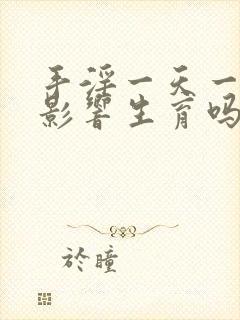 手淫一天一
影響生育吗
於瞳